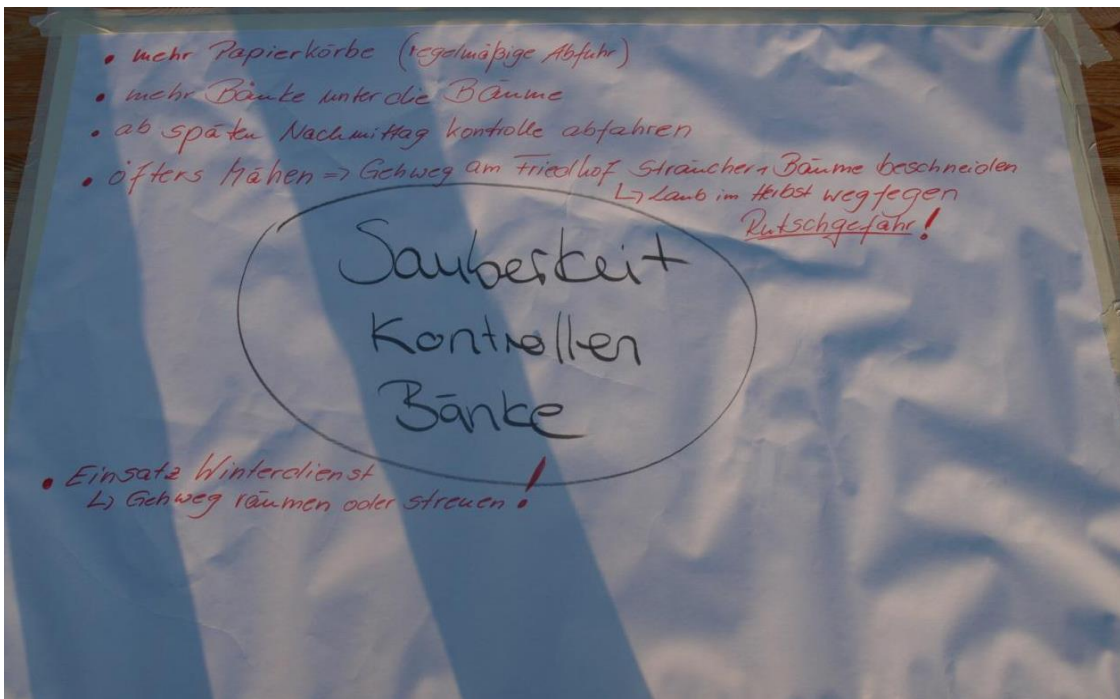 • mehr Papierkörbe (regelmäßige Abfuhr)
• mehr Bänke unter die Bäume
• ab späten Nachmittag kontrolle abfahren
• öfters Mähen => Gehweg am Friedhof Sträucher + Bäume beschneiden
↳ Laub im Herbst wegfegen
Rutschgefahr!
Sauberkeit
Kontrollen
Bänke
• Einsatz Winterdienst
↳ Gehweg räumen oder streuen!